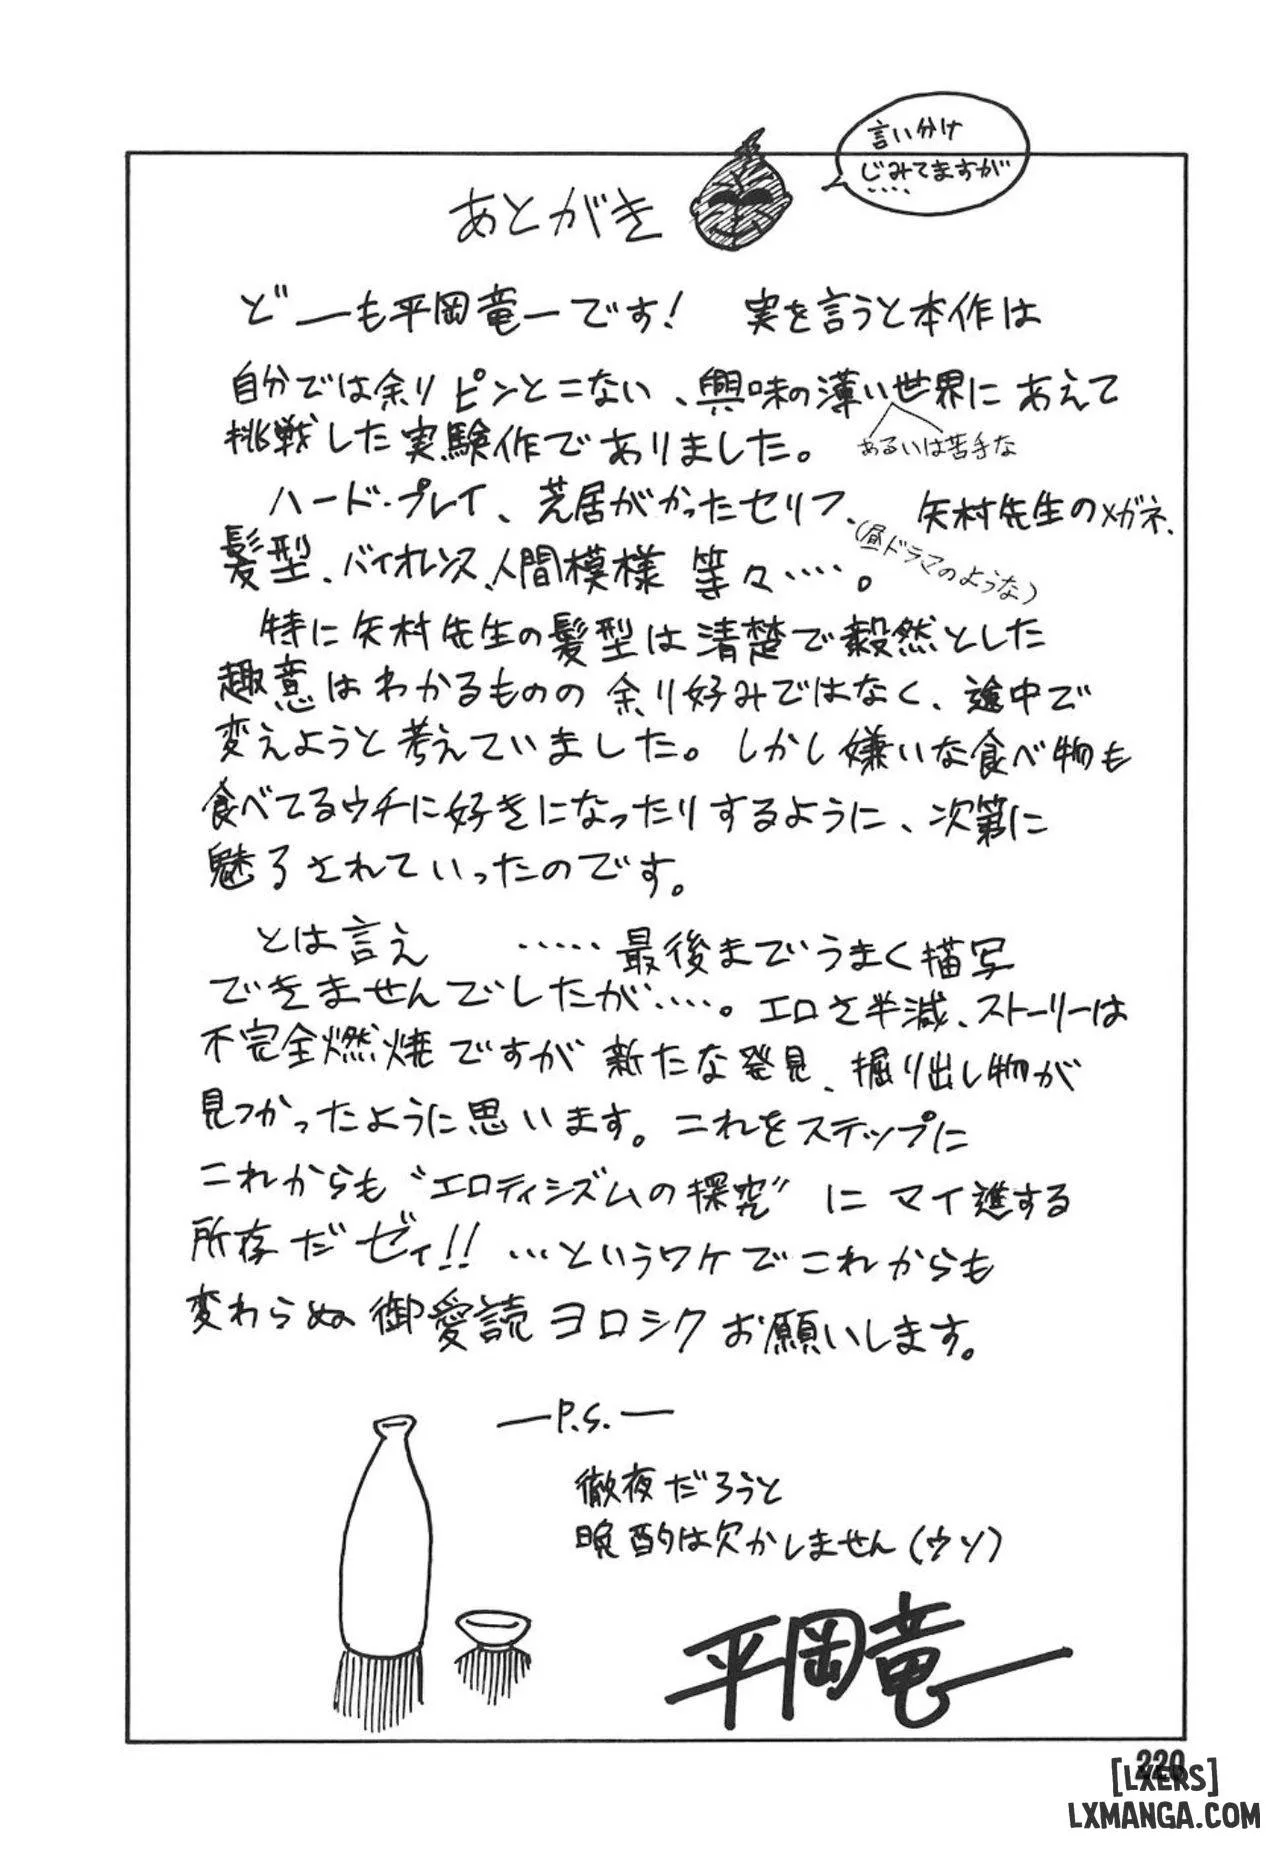 言い分け
じみてますが
‥‥
あとがき
どーも平岡竜一です! 実を言うと本作は
自分では余りピンとこない、興味の薄い世界にあえて
挑戦した実験作でありました。
あるいは苦手な
ハード・プレイ、芝居がかったセリフ、矢村先生のメガネ、
髪型、バイオレンス、人間模様 等々‥‥。
(昼ドラマのような)
特に矢村先生の髪型は清楚で毅然とした
趣意はわかるものの余り好みではなく、途中で
変えようと考えていました。しかし嫌いな食べ物も
食べてるウチに好きになったりするように、次第に
魅了されていったのです。
とは言え ‥‥‥最後までうまく描写
できませんでしたが‥‥。エロさ半減、ストーリーは
不完全燃焼ですが新たな発見、掘り出し物が
見つかったように思います。これをステップに
これからも“エロティシズムの探究”にマイ進する
所存だゼィ!! …というワケでこれからも
変わらぬ御愛読ヨロシクお願いします。
—P.S.—
徹夜だろうと
晩酌は欠かしません(ウソ)
平岡竜一
220
[LXERS]
LXMANGA.COM